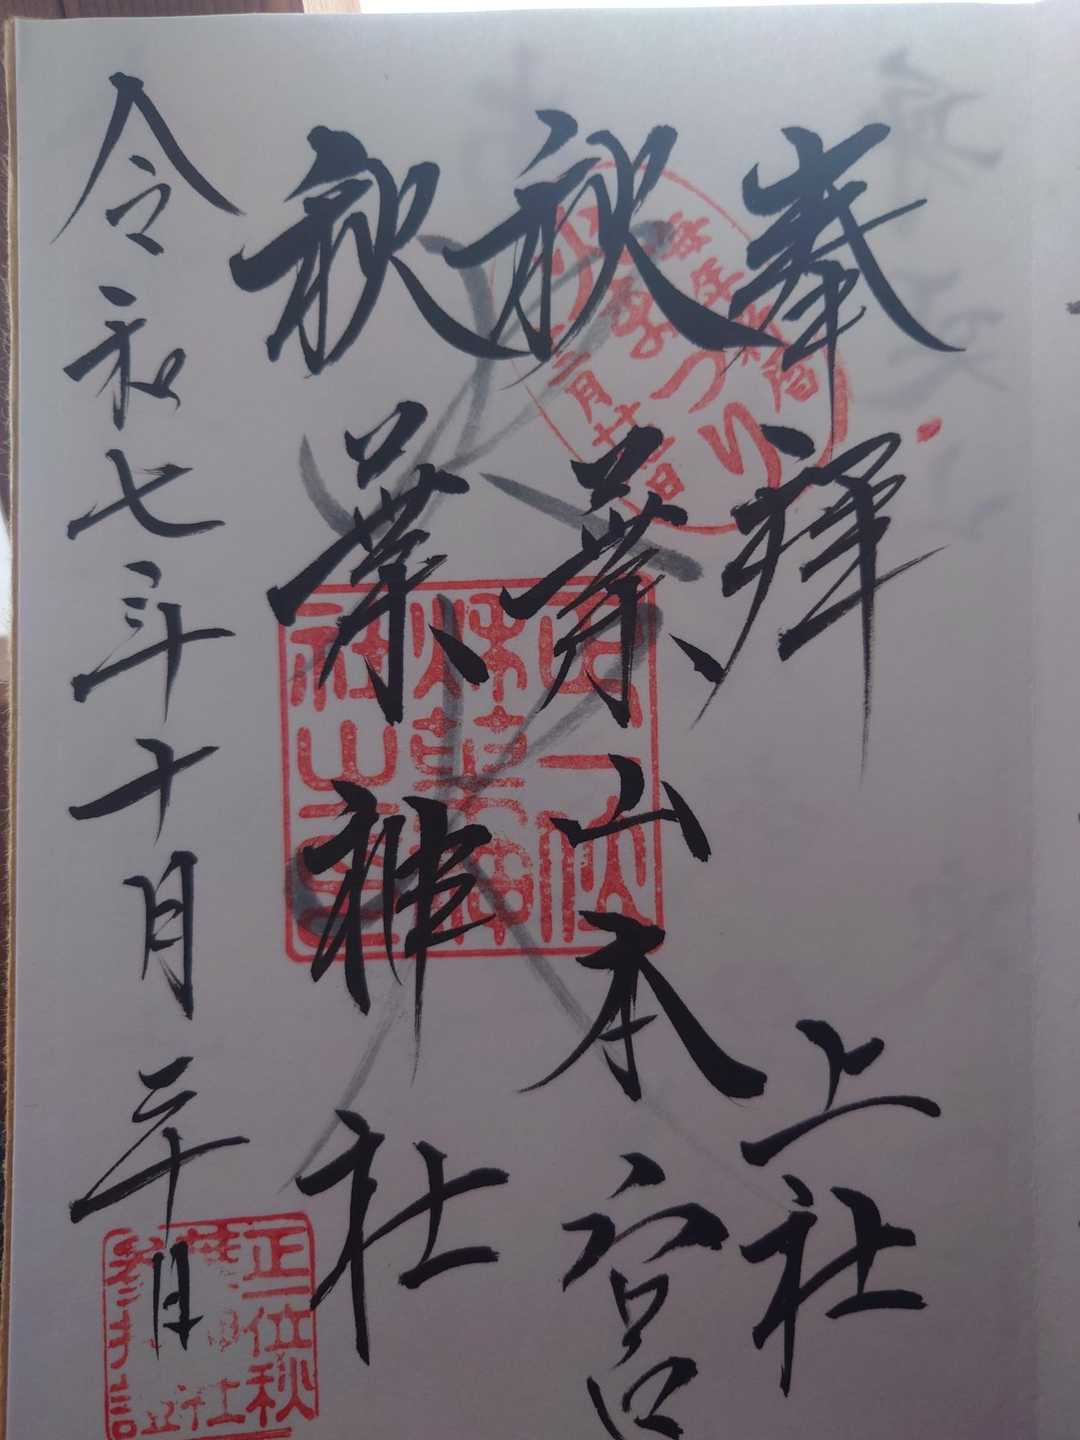 奉拝 上社
秋葉山本宮
秋葉神社
令和七年十月二十日
正一位
秋葉神
社之印
正一位秋